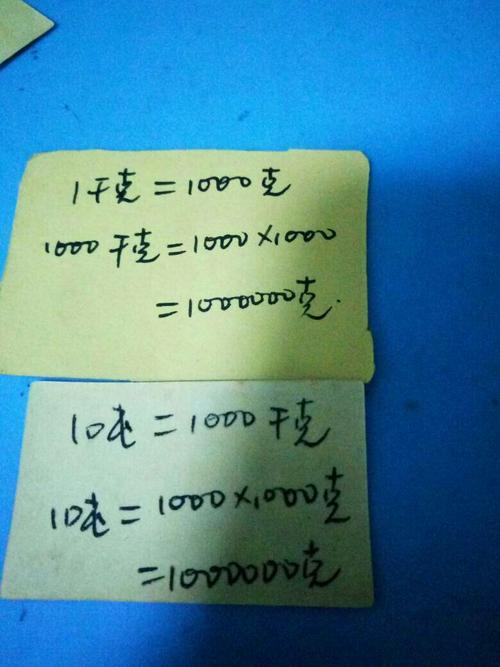 1千克=1000克
1000千克=1000×1000
=1000000克.
10吨=1000千克
10吨=1000×1000克
=1000000克